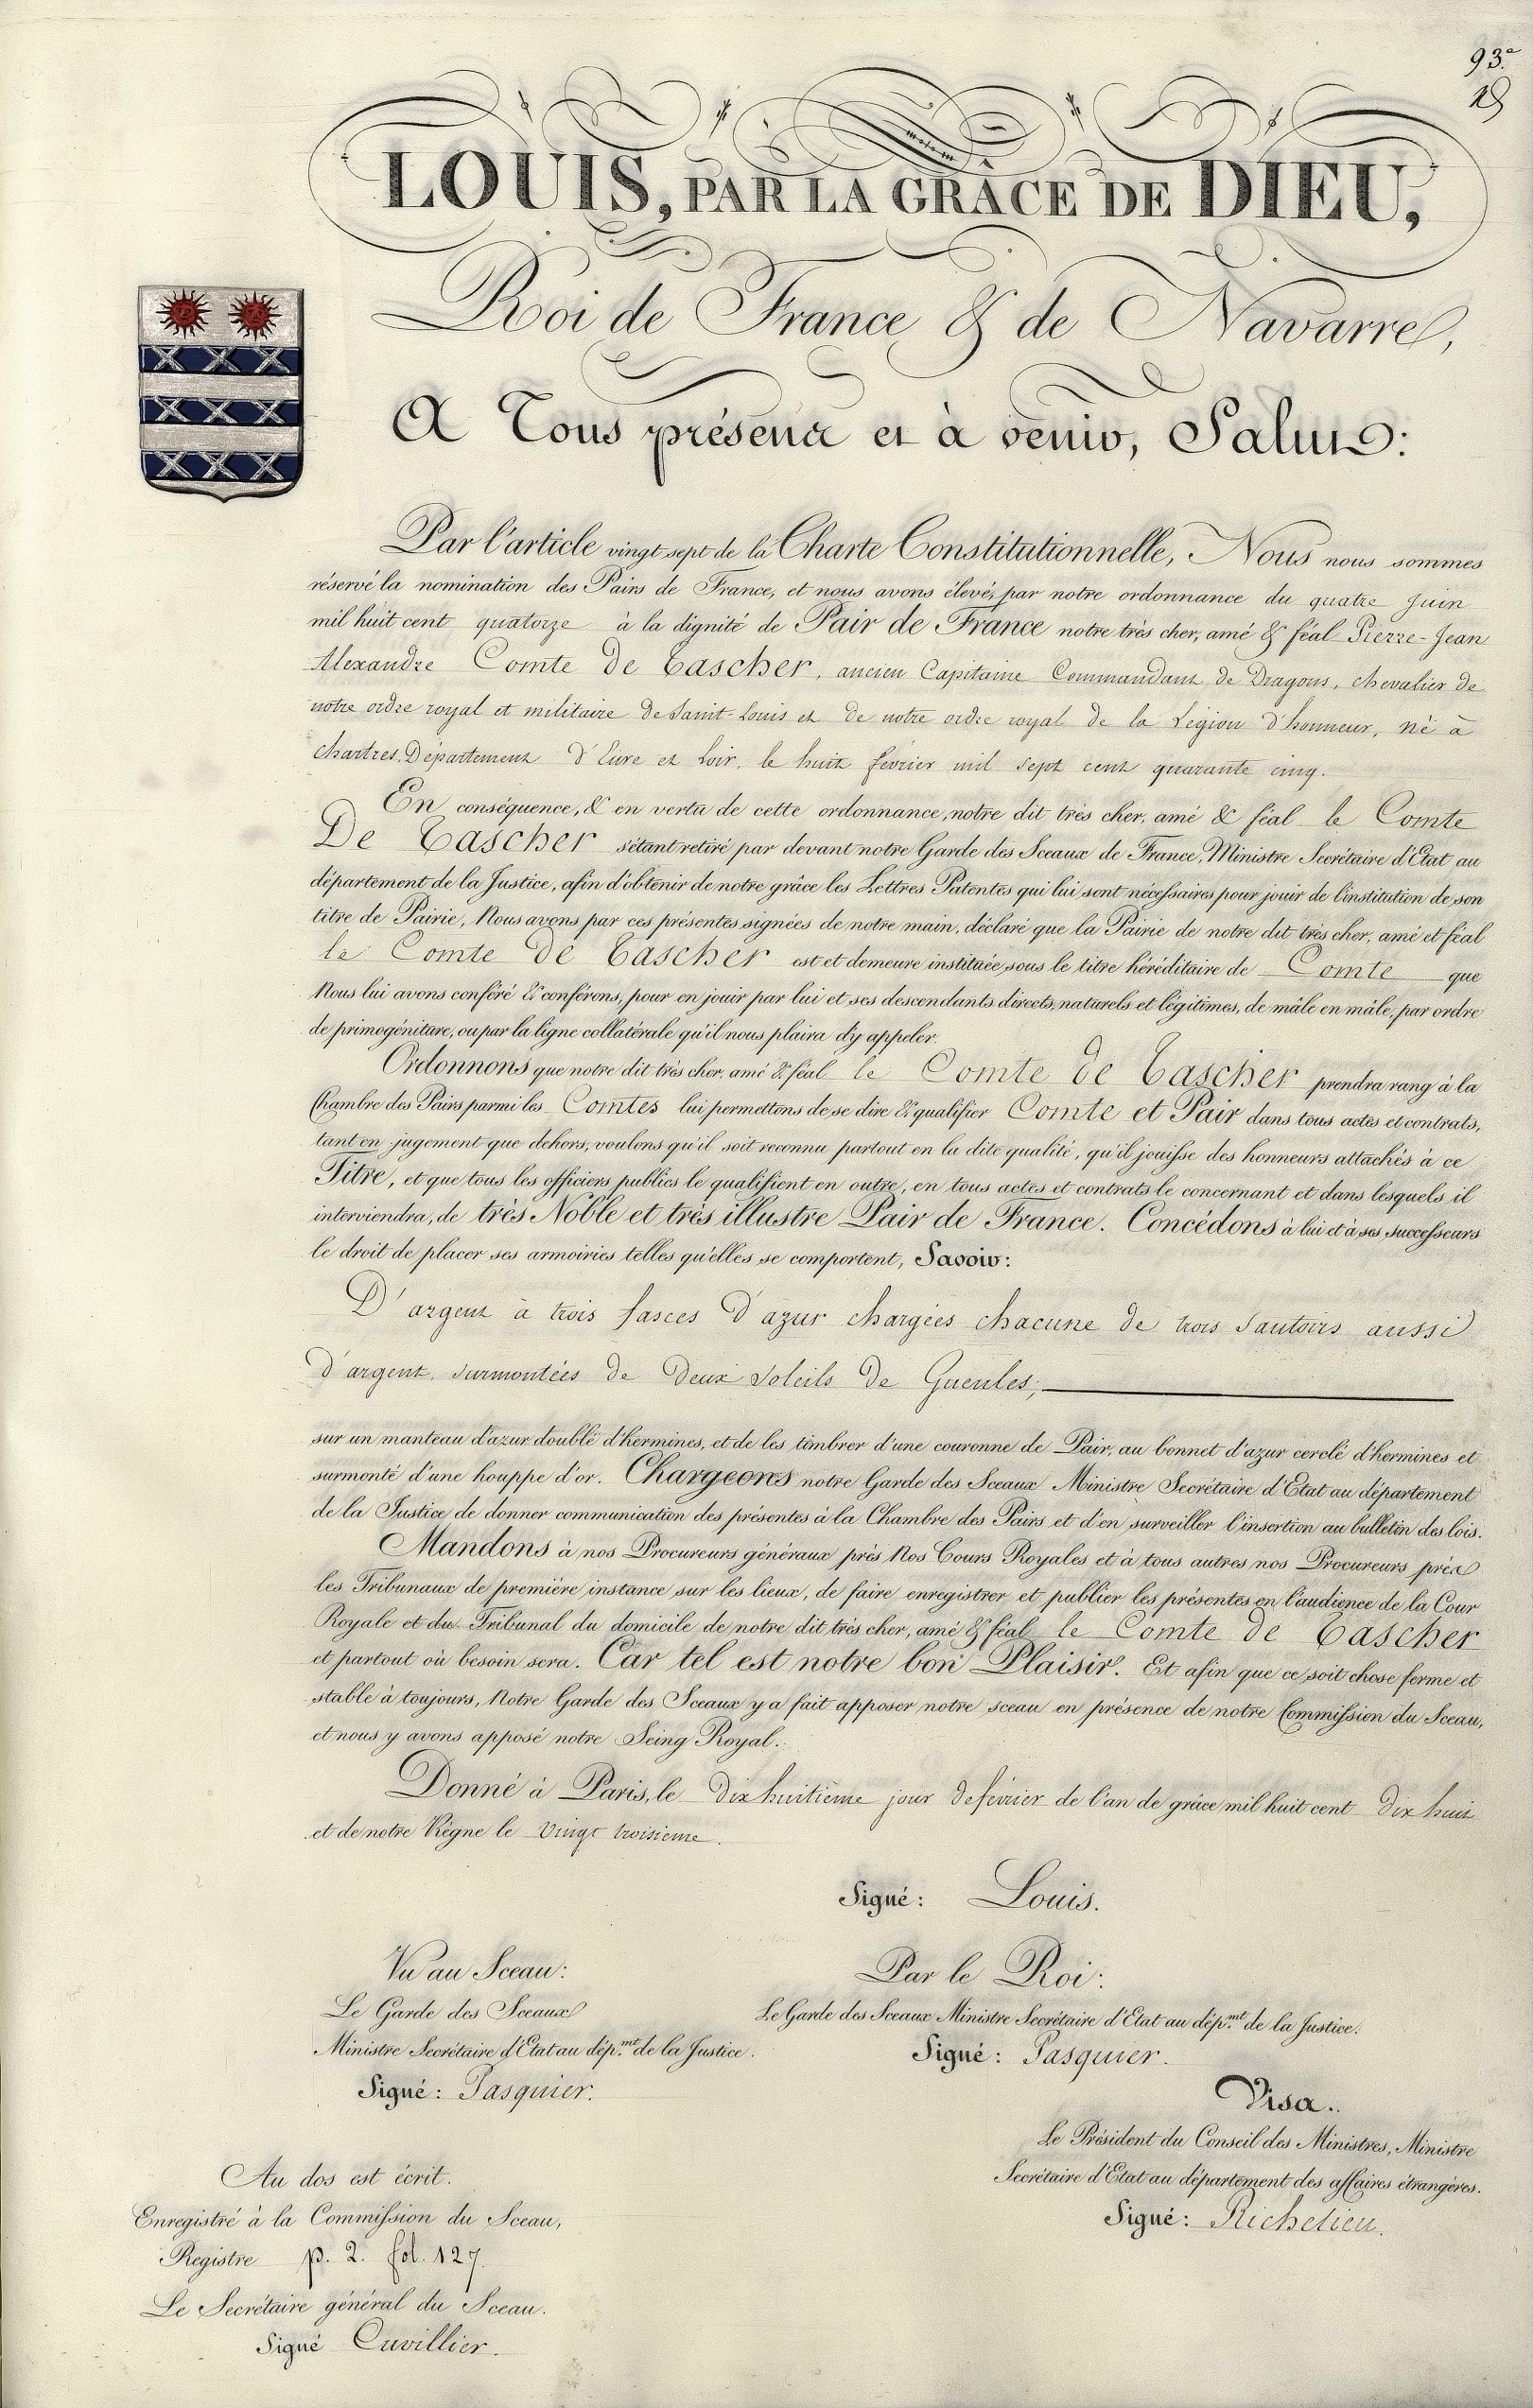 93.e
LOUIS, PAR LA GRÂCE DE DIEU,
Roi de France & de Navarre,
A Tous présens et à venir, Salut:
Par l'article vingt sept de la Charte Constitutionnelle, Nous nous sommes
réservé la nomination des Pairs de France, et nous avons élevé, par notre ordonnance du quatre Juin
mil huit cent quatorze à la dignité de Pair de France notre très cher, amé & féal Pierre-Jean
Alexandre Comte De Tascher, ancien Capitaine Commandant de Dragons, chevalier de
notre ordre royal et militaire de Saint-Louis et de notre ordre royal de la Légion d'honneur, né à
Chartres, Département d'Eure et Loir, le huit février mil sept cent quarante cinq.
En conséquence, & en vertu de cette ordonnance, notre dit très cher, amé & féal le Comte
De Tascher s'étant retiré par devant notre Garde des Sceaux de France, Ministre Secrétaire d'Etat au
département de la Justice, afin d'obtenir de notre grâce les Lettres Patentes qui lui sont nécessaires pour jouir de l'institution de son
titre de Pairie, Nous avons par ces présentes signées de notre main, déclaré que la Pairie de notre dit très cher, amé et féal
le Comte De Tascher est et demeure instituée sous le titre héréditaire de Comte que
Nous lui avons conféré & conférons, pour en jouir par lui et ses descendants directs, naturels et légitimes, de mâle en mâle, par ordre
de primogéniture, ou par la ligne collatérale qu'il nous plaira d'y appeler.
Ordonnons que notre dit très cher, amé & féal le Comte de Tascher prendra rang à la
Chambre des Pairs parmi les Comtes lui permettons de se dire & qualifier Comte et Pair dans tous actes et contrats,
tant en jugement que dehors, voulons qu'il soit reconnu partout en la dite qualité, qu'il jouisse des honneurs attachés à ce
Titre, et que tous les officiers publics le qualifient en outre, en tous actes et contrats le concernant et dans lesquels il
interviendra, de très Noble et très illustre Pair de France. Concédons à lui et à ses successeurs
le droit de placer ses armoiries telles qu'elles se comportent, Savoir:
D'argent à trois fasces d'azur chargées chacune de trois Sautoirs aussi
d'argent, surmontées de Deux soleils de Gueules;
sur un manteau d'azur doublé d'hermines, et de les timbrer d'une couronne de Pair, au bonnet d'azur cerclé d'hermines et
surmonté d'une houppe d'or. Chargeons notre Garde des Sceaux Ministre Secrétaire d'Etat au département
de la Justice de donner communication des présentes à la Chambre des Pairs et d'en surveiller l'insertion au bulletin des lois.
Mandons à nos Procureurs généraux près Nos Cours Royales et à tous autres nos Procureurs près
les Tribunaux de première instance sur les lieux, de faire enregistrer et publier les présentes en l'audience de la Cour
Royale et du Tribunal du domicile de notre dit très cher, amé & féal le Comte de Tascher
et partout où besoin sera. Car tel est notre bon Plaisir. Et afin que ce soit chose ferme et
stable à toujours, Notre Garde des Sceaux y a fait apposer notre sceau en présence de notre Commission du Sceau,
et nous y avons apposé notre Seing Royal.
Donné à Paris, le Dix huitième jour de février de l'an de grâce mil huit cent Dix huit
et de notre Règne le Vingt troisième.
Signé: Louis.
Vu au Sceau:
Le Garde des Sceaux
Ministre Secrétaire d'Etat au dép.mt de la Justice.
Signé: Pasquier.
Par le Roi:
Le Garde des Sceaux Ministre Secrétaire d'Etat au dép.mt de la Justice.
Signé: Pasquier.
Visa.
Le Président du Conseil des Ministres, Ministre
Secrétaire d'Etat au département des affaires étrangères.
Signé: Richelieu.
Au dos est écrit.
Enregistré à la Commission du Sceau,
Registre p. 2. fol. 127.
Le Secrétaire général du Sceau.
Signé Cuvillier.